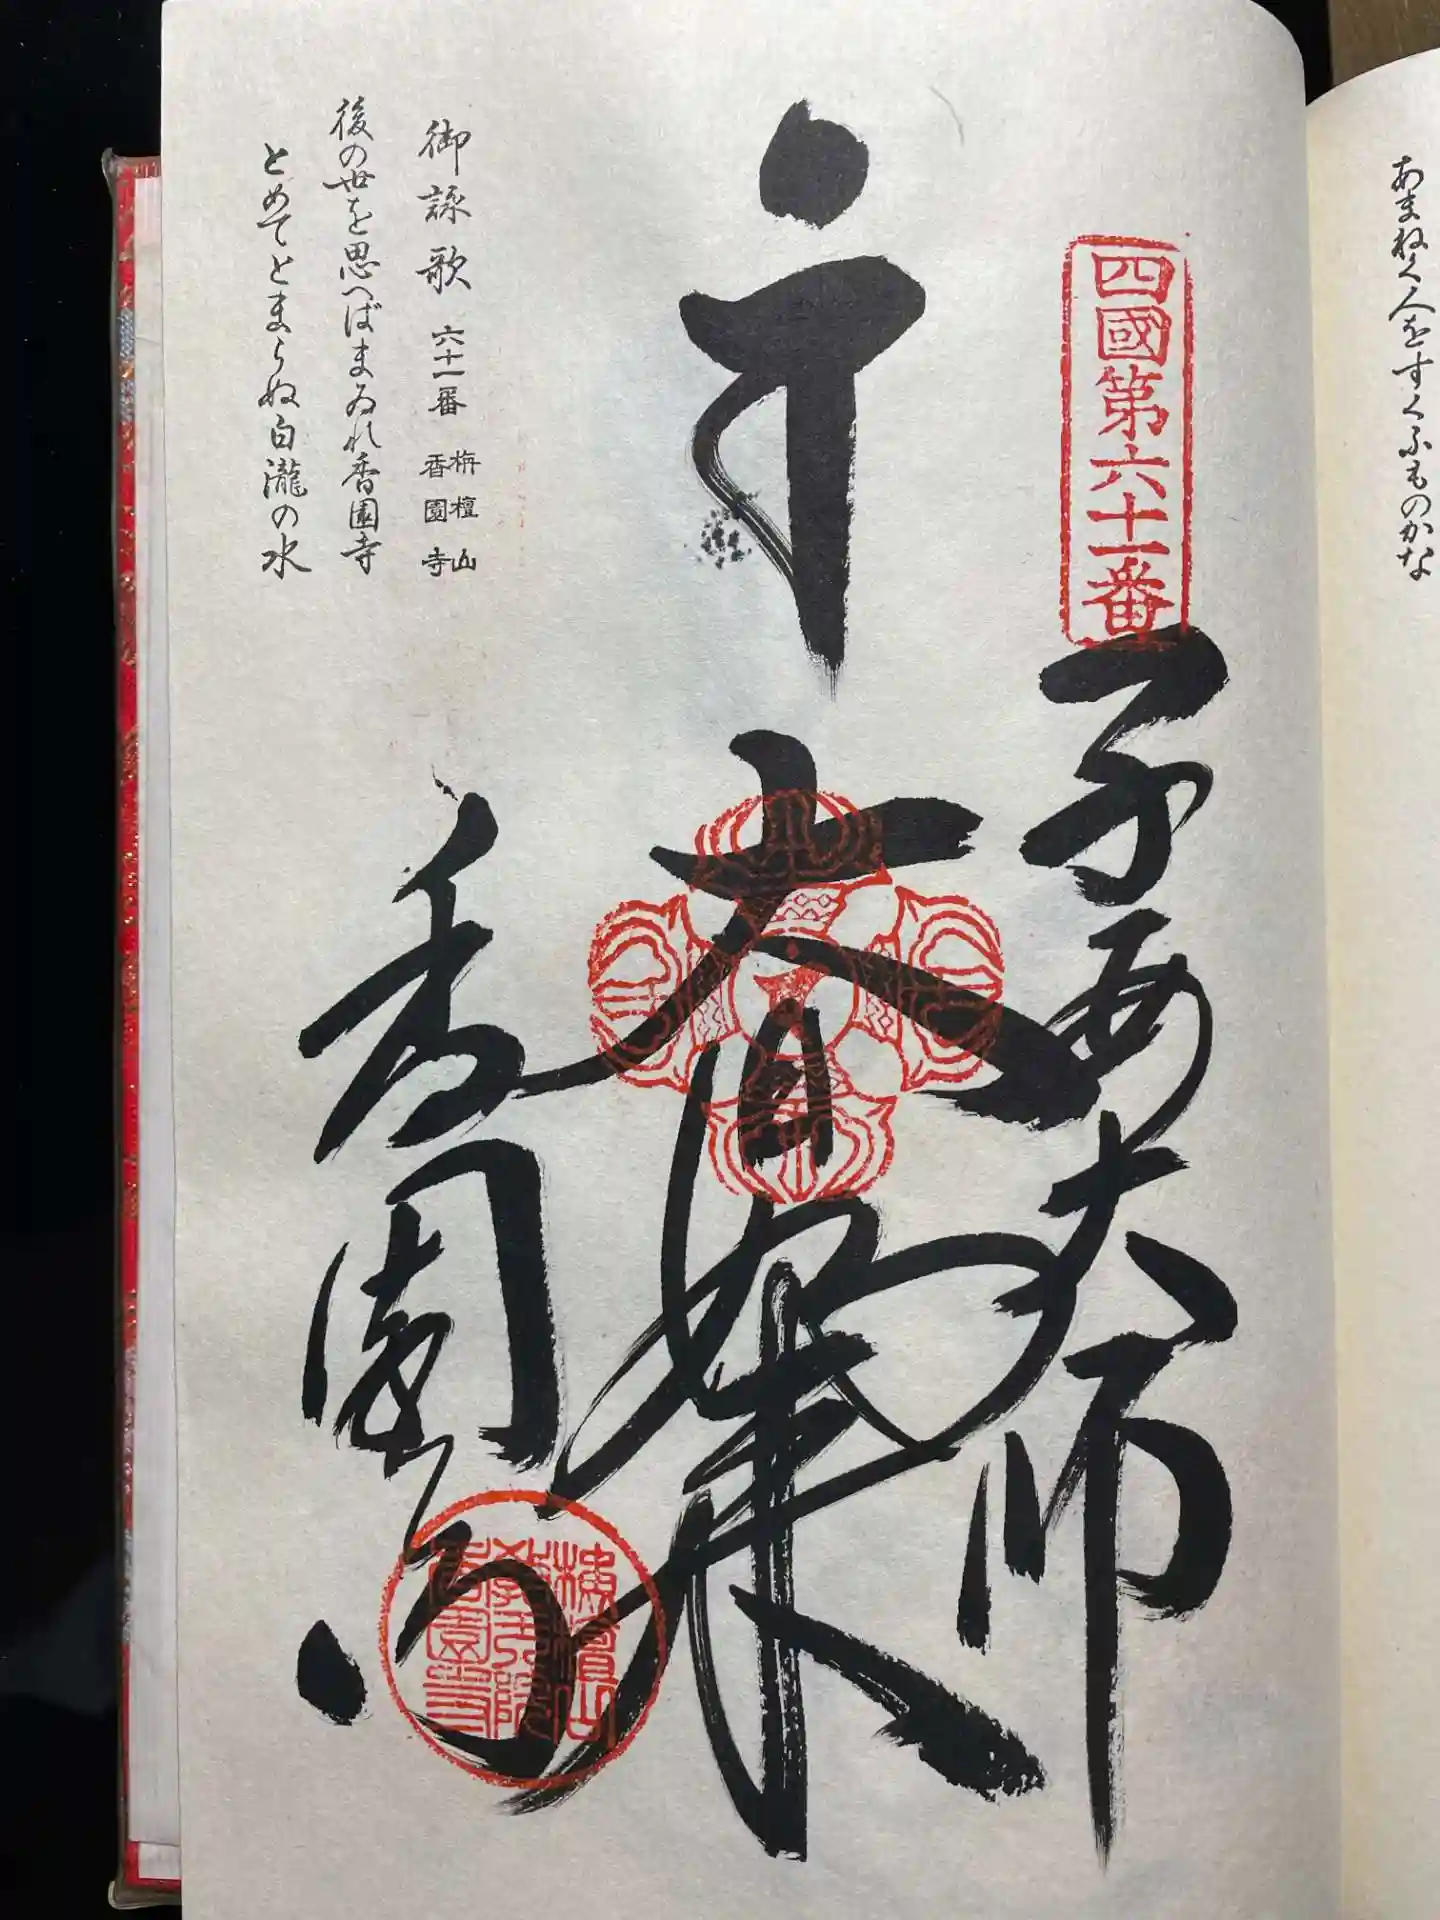 あまねく人をすくふものかな
四國第六十一番
子安大師
大日如来
香園寺
御詠歌 六十一番 栴檀山 香園寺
後の世を思へばまゐれ香園寺
とめてとまらぬ白瀧の水
栴檀山
教王院
香園寺